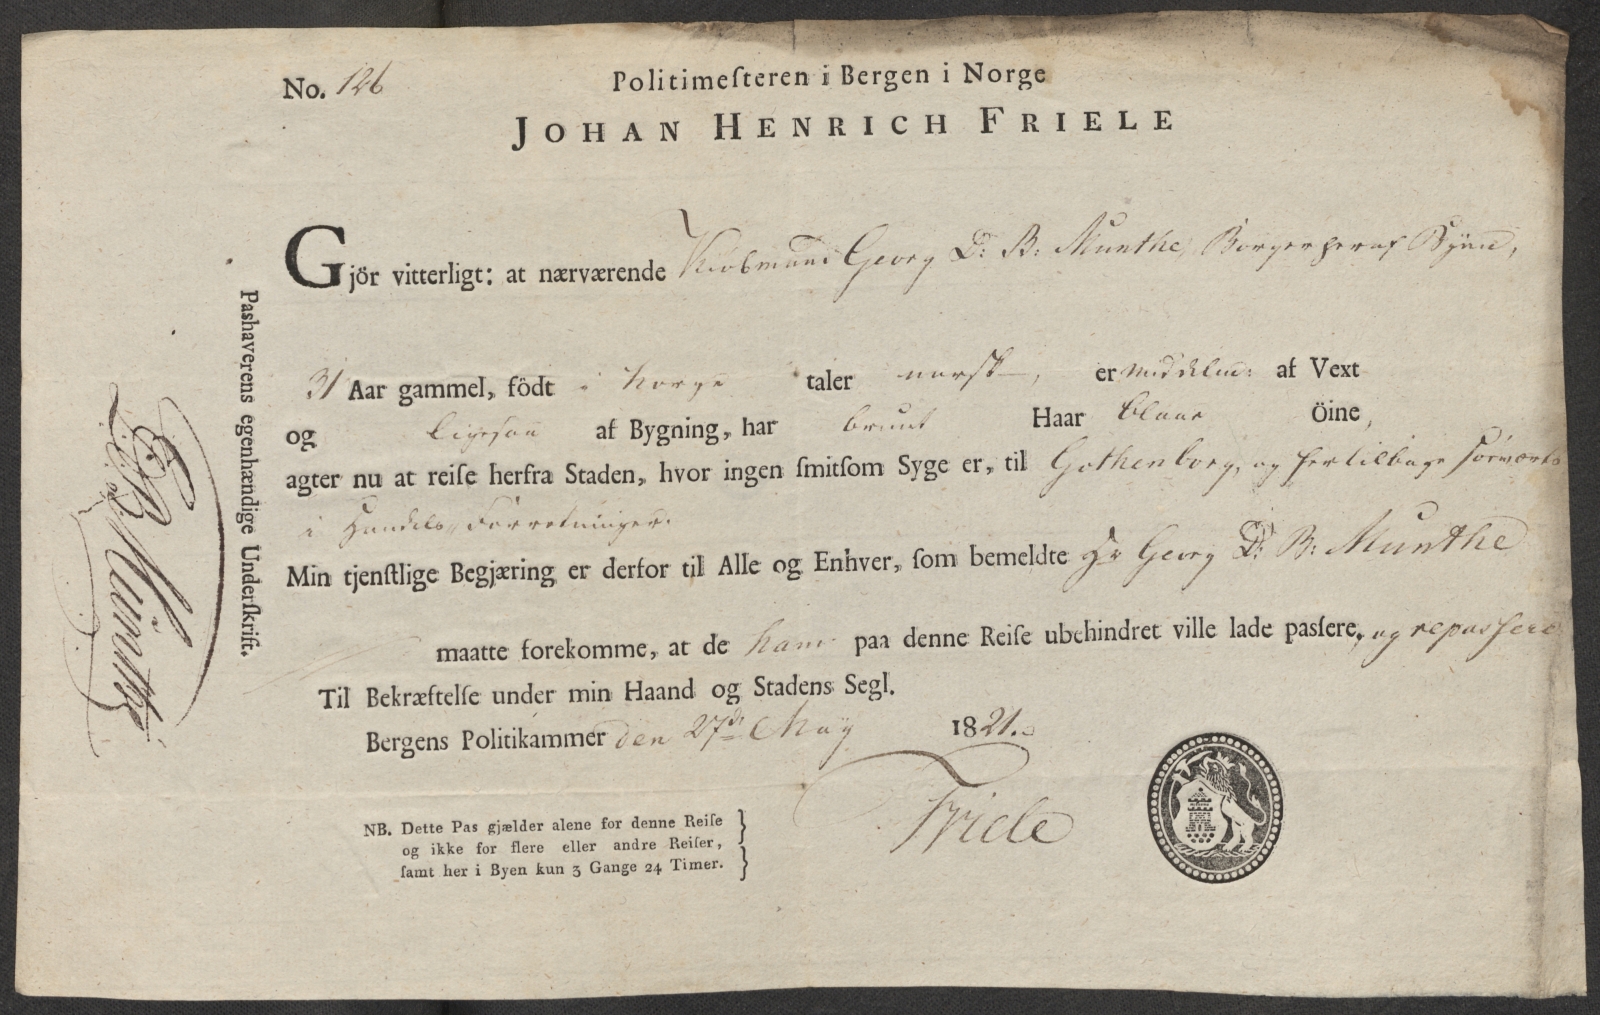 No. 126
Politimeſteren i Bergen i Norge
JOHAN HENRICH FRIELE
Gjör vitterligt: at nærværende Kiøbmand Georg D: B: Munthe, Borger heraf Byen,
31 Aar gammel, födt i Norge taler norsk, er middelm: af Vext
og ligesaa af Bygning, har brunt Haar blaae öine,
agter nu at reiſe herfra Staden, hvor ingen ſmitſom Syge er, til Gothenborg, og her tilbage
i Handels Forretninger.
Min tjenſtlige Begjæring er derfor til Alle og Enhver, ſom bemeldte Hr Georg D: B: Munthe
maatte forekomme, at de ham paa denne Reiſe ubehindret ville lade paſſere, og repassere
Til Bekræftelſe under min Haand og Stadens Segl.
Bergens Politikammer den 27de May 1821.
Friele
NB. Dette Pas gjælder alene for denne Reiſe
og ikke for flere eller andre Reiſer,
ſamt her i Byen kun 3 Gange 24 Timer.
Pashaverens egenhændige Underſkrift.
G D B Münthe